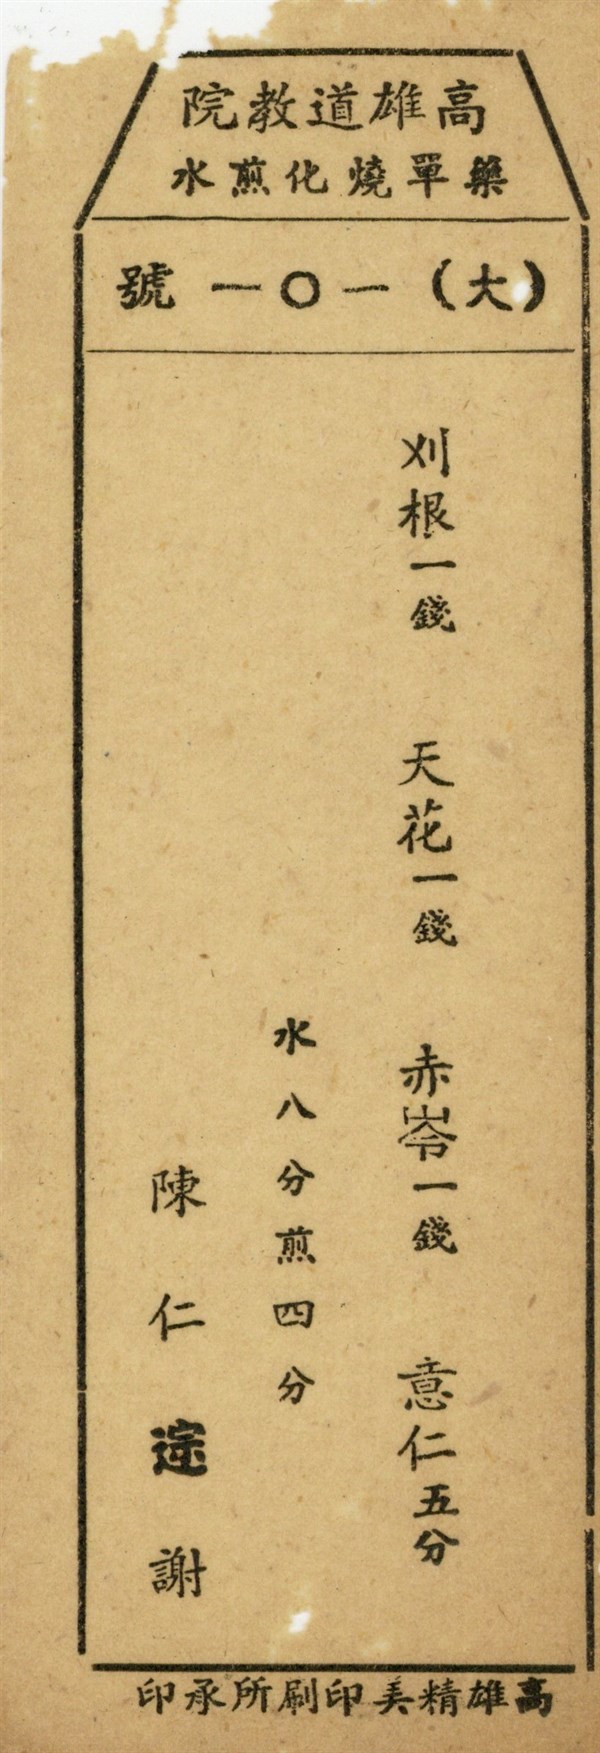 高雄道教院
藥單燒化煎水
(大)一〇一號
刈根一錢 天花一錢 赤岺一錢 意仁五分
水八分煎四分
陳仁 謝
高雄精美印刷所承印